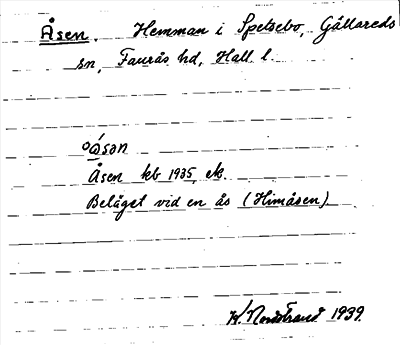 Åsen. Hemman i Spetsebo, Gällareds
sn, Faurås hd, Hall. l.
åsən
Åsen kb 1935, ek.
Beläget vid en ås (Himåsen).
K. Nordstrand 1939.